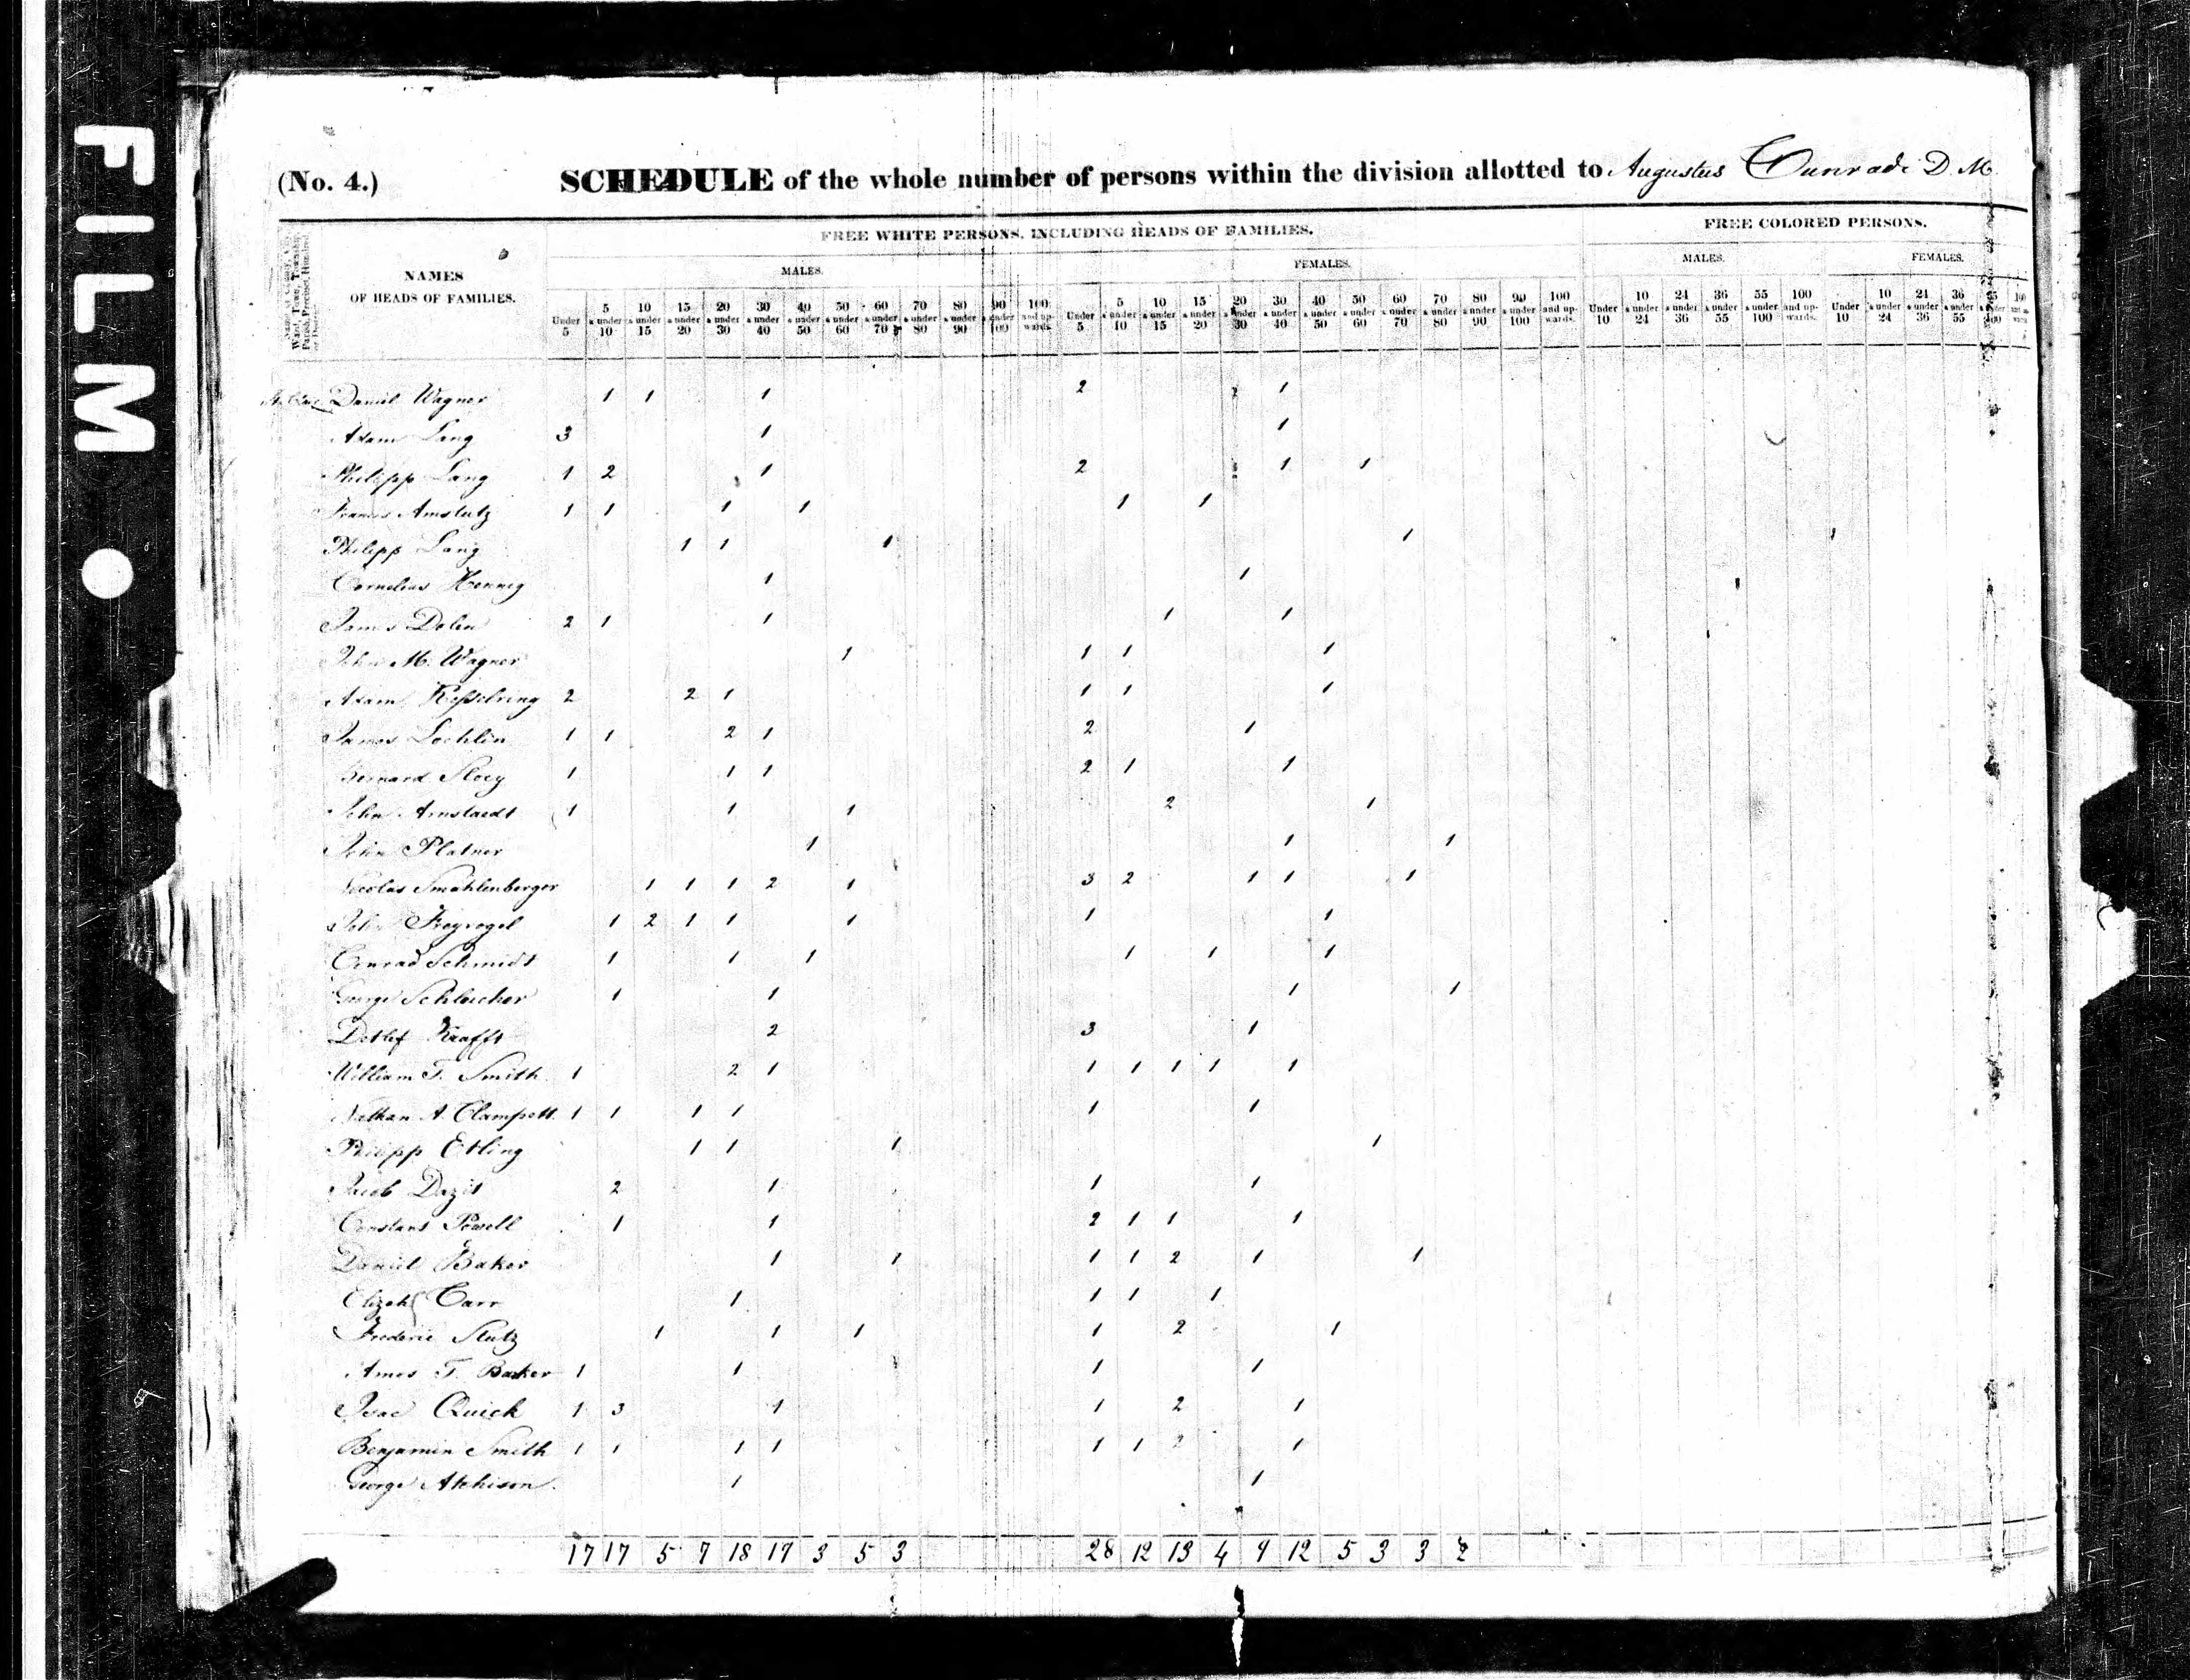 FILM
(No. 4.) SCHEDULE of the whole number of persons within the division allotted to Augustus Cunradi D. M.
FREE WHITE PERSONS, INCLUDING HEADS OF FAMILIES. FREE COLORED PERSONS.
NAMES OF HEADS OF FAMILIES.
MALES. FEMALES. MALES. FEMALES.
Under 5 5 & under 10 10 & under 15 15 & under 20 20 & under 30 30 & under 40 40 & under 50 50 & under 60 60 & under 70 70 & under 80 80 & under 90 90 & under 100 100 and upwards. Under 5 5 & under 10 10 & under 15 15 & under 20 20 & under 30 30 & under 40 40 & under 50 50 & under 60 60 & under 70 70 & under 80 80 & under 90 90 & under 100 100 and upwards. Under 10 10 & under 24 24 & under 36 36 & under 55 55 & under 100 100 and upwards. Under 10 10 & under 24 24 & under 36 36 & under 55
Daniel Wagner 1 1 1 2 1
Adam Lang 3 1 1
Philipp Lang 1 2 1 2 1 1
Amstutz 1 1 1 1 1 1
Philipp Lang 1 1 1 1 1
Cornelius Hennig 1 1
James Dolen 2 1 1 1 1
John M. Wagner 1 1 1 1
Adam Keſselring 2 2 1 1 1 1
James Lochlin 1 1 2 1 2 1
Bernard 1 1 1 2 1 1
John 1 1 1 2 1
John Platner 1 1 1
Nicolas Smahlenberger 1 1 1 2 1 3 2 1 1 1
John Freyvogel 1 2 1 1 1 1 1
Conrad Schmidt 1 1 1 1 1 1
George Schleicher 1 1 1 1
Detlef Krafft 2 3 1
William T. Smith 1 2 1 1 1 1 1 1
Nathan A. Clampett 1 1 1 1 1 1
Philipp Etling 1 1 1 1
Jacob 2 1 1 1
Constant Powell 1 1 2 1 1 1
Daniel Baker 1 1 1 1 2 1 1
Carr 1 1 1 1
Frederic Stutz 1 1 1 1 2 1
Amos T. Barker 1 1 1 1
Isac Quick 1 3 1 1 2 1
Benjamin Smith 1 1 1 1 1 1 2 1
George Atchison. 1 1
17 17 5 7 18 17 3 5 3 28 12 13 4 9 12 5 3 3 2